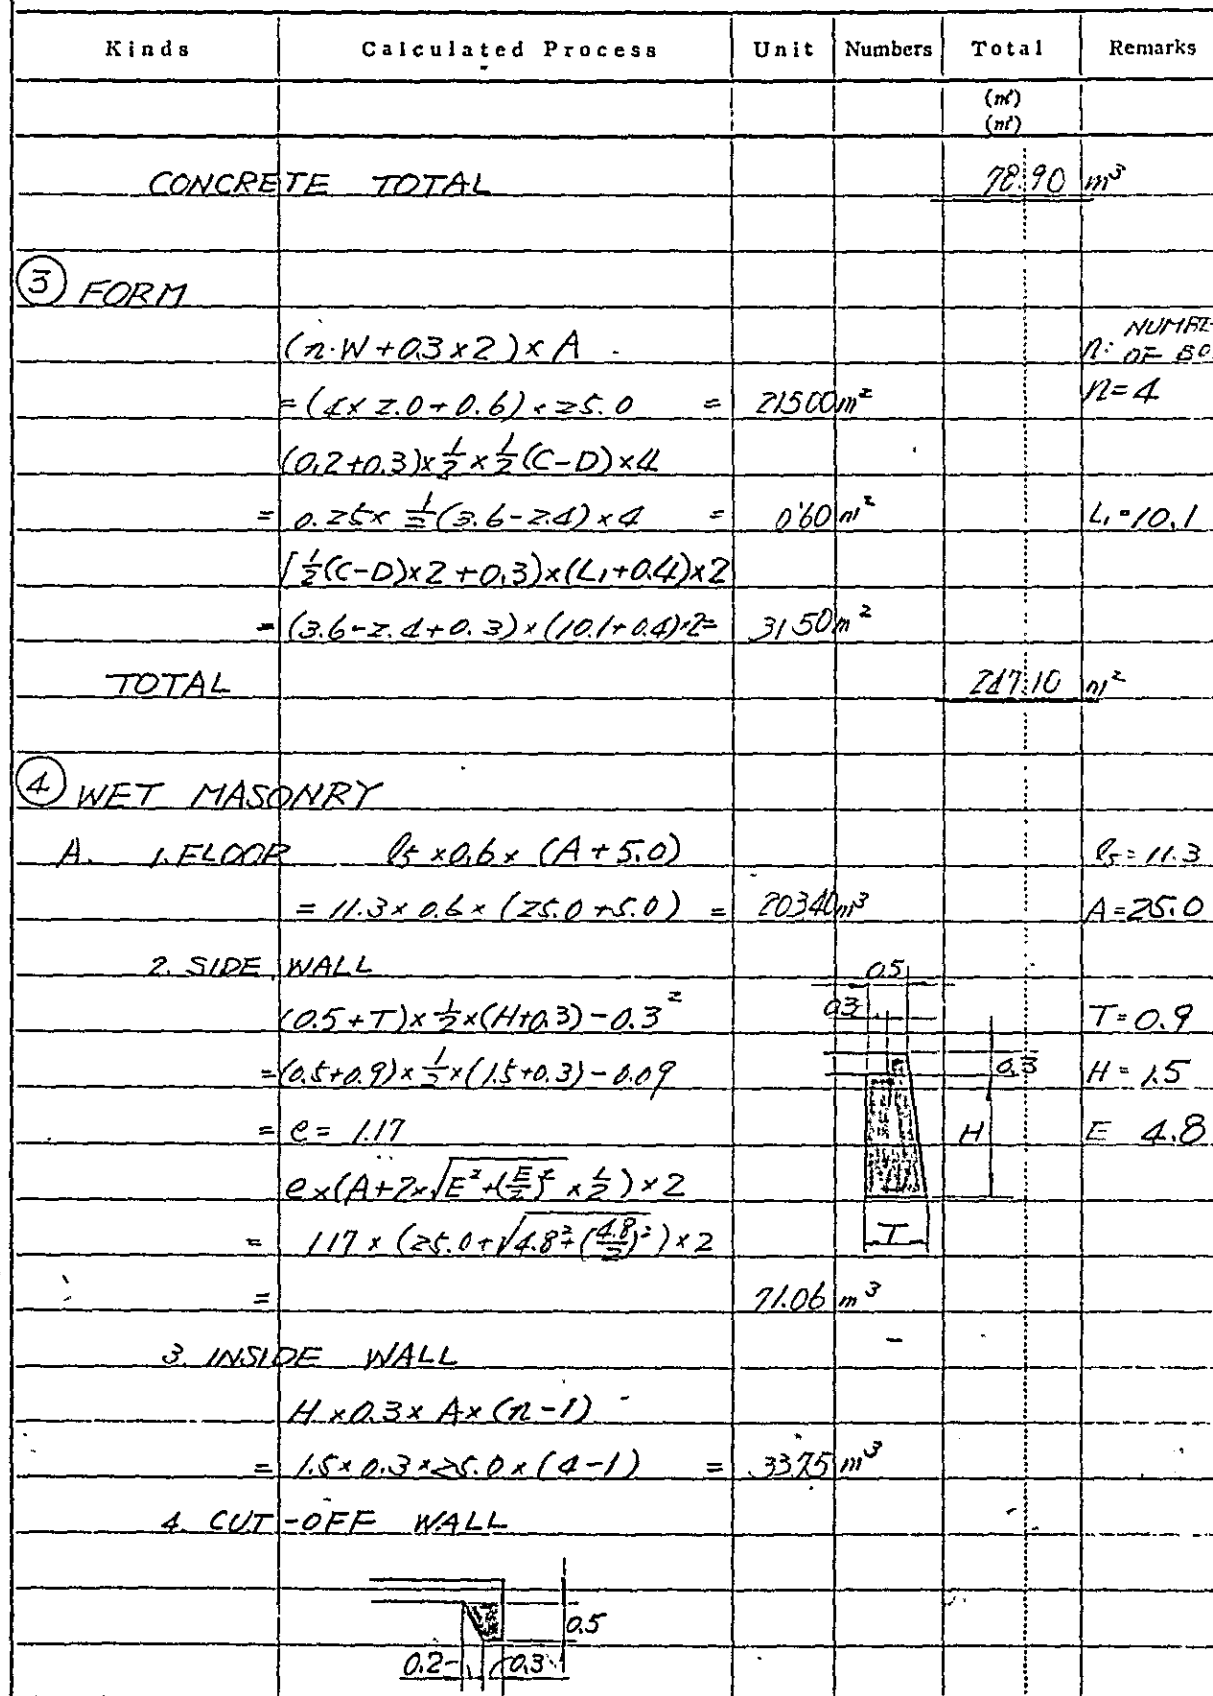 Kinds Calculated Process Unit Numbers Total Remarks
(m²)
(m³)
CONCRETE TOTAL 78.90 m³
③ FORM
(n·W+0.3×2)×A n: NUMBE OF BO
=(4×2.0+0.6)×25.0 = 215.00 m² n=4
(0.2+0.3)×1/2×1/2(C-D)×4
= 0.25×1/2(3.6-2.4)×4 = 0.60 m² L₁=10.1
{1/2(C-D)×2+0.3)×(L₁+0.4)×2
=(3.6-2.4+0.3)×(10.1+0.4)×2= 31.50 m²
TOTAL 247.10 m²
④ WET MASONRY
A. 1. FLOOR ℓ₅×0.6×(A+5.0) ℓ₅=11.3
= 11.3×0.6×(25.0+5.0) = 203.40 m³ A=25.0
2. SIDE WALL 0.5
(0.5+T)×1/2×(H+0.3)-0.3² 0.3 T=0.9
=(0.5+0.9)×1/2×(1.5+0.3)-0.09 0.3 H=1.5
= e = 1.17 H E 4.8
e×(A+2×√E²+(E/2)²×1/2)×2
= 1.17×(25.0+√4.8²+(4.8/2)²)×2 T
= 71.06 m³
3. INSIDE WALL
H×0.3×A×(n-1)
= 1.5×0.3×25.0×(4-1) = 33.75 m³
4. CUT-OFF WALL
0.5
0.2 0.3